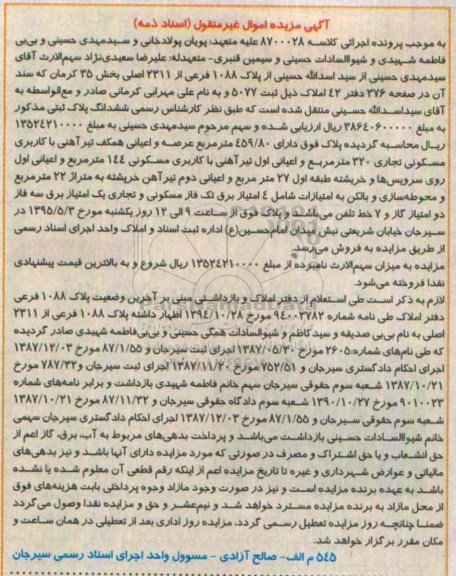 آگهی مزیده اموال غیرمنقول (اسناد ذمه)
به موجب پرونده اجرائی کلاسه ۸۷۰۰۰۲۸ علیه متعهد: پویان پولادخانی و سیدمهدی حسینی و بی‌بی
فاطمه شهیدی و شیوالسادات حسینی و سیمین قنبری- متعهدله: علیرضا سعیدی‌نژاد سهم‌الارث آقای
سیدمهدی حسینی از سید اسدالله حسینی از پلاک ۱۰۸۸ فرعی از ۲۳۱۱ اصلی بخش ۳۵ کرمان که سند
آن در صفحه ۳۷۶ دفتر ۴۲ املاک ذیل ثبت ۵۰۷۷ و به نام علی مهرابی کرمانی صادر و مع‌الواسطه به
آقای سیداسدالله حسینی منتقل شده است که طبق نظر کارشناس رسمی ششدانگ پلاک ثبتی مذکور
به مبلغ ۳۸۶۴۰۶۰۰۰۰۰ ریال ارزیابی شده و سهم مرحوم سیدمهدی حسینی به مبلغ ۱۳۵۲۴۲۱۰۰۰۰
ریال محاسبه گردیده پلاک فوق دارای ۴۵۹/۸۰ مترمربع عرصه و اعیانی همکف تیرآهنی با کاربری
مسکونی تجاری ۳۲۰ مترمربع و اعیانی اول تیرآهنی با کاربری مسکونی ۱۴۴ مترمربع و اعیانی اول
روی سرویس‌ها و خرپشته طبقه اول ۲۷ متر مربع و اعیانی دوم تیرآهن خرپشته به متراژ ۲۲ مترمربع
و محوطه‌سازی و بالکن به امتیازات شامل ۴ امتیاز برق تک فاز مسکونی و تجاری یک امتیاز برق سه فاز
دو امتیاز گاز و ۷ خط تلفن می‌باشد و پلاک فوق از ساعت ۹ الی ۱۲ روز یکشنبه مورخ ۱۳۹۵/۵/۳ در
سیرجان خیابان شریعتی نبش میدان امام‌حسین(ع) اداره ثبت اسناد و املاک واحد اجرای اسناد رسمی
از طریق مزایده به فروش می‌رسد.
مزایده به میزان سهم‌الارث نامبرده از مبلغ ۱۳۵۲۴۲۱۰۰۰۰ ریال شروع و به بالاترین قیمت پیشنهادی
نقدا فروخته می‌شود.
لازم به ذکر است طی استعلام از دفتر املاک و بازداشتی مبنی بر آخرین وضعیت پلاک ۱۰۸۸ فرعی
دفتر املاک طی نامه شماره ۹۴۰۰۳۷۸۲ مورخ ۱۳۹۴/۱۰/۲۸ اظهار داشته پلاک ۱۰۸۸ فرعی از ۲۳۱۱
اصلی به نام بی‌بی صدیقه و سید کاظم و شیوالسادات همگی حسینی و بی‌بی‌فاطمه شهیدی صادر گردیده
که طی نام‌های شماره: ۲۶۰۵ مورخ ۱۳۸۷/۰۵/۳۰ اجرای ثبت سیرجان و ۸۷/۱/۵۵ مورخ ۱۳۸۷/۱۲/۰۳
اجرای احکام دادگستری سیرجان و ۷۵۲/۵۱ مورخ ۱۳۸۷/۱۱/۲۰ اجرای ثبت سیرجان و ۷۸۷/۳۲ مورخ
۱۳۸۷/۱۰/۲۱ شعبه سوم حقوقی سیرجان سهم خانم فاطمه شهیدی بازداشت و برابر نامه‌های شماره
۹۰۱۰۰۲۳ مورخ ۱۳۹۰/۱۰/۲۷ شعبه سوم دادگاه حقوقی سیرجان و ۸۷/۱۱/۳۲ مورخ ۱۳۸۷/۱۰/۲۱
شعبه سوم حقوقی سیرجان و ۸۷/۱/۵۵ مورخ ۱۳۸۷/۱۲/۰۳ اجرای احکام دادگستری سیرجان سهمی
خانم شیواالسادات حسینی بازداشت می‌باشد و پرداخت بدهی‌های مربوط به آب، برق، گاز اعم از
حق انشعاب و یا حق اشتراک و مصرف در صورتی که مورد مزایده دارای آنها باشد و نیز بدهی‌های
مالیاتی و عوارض شهرداری و غیره تا تاریخ مزایده اعم از اینکه رقم قطعی آن معلوم شده یا نشده
باشد به عهده برنده مزایده است و نیز در صورت وجود مازاد وجوه پرداختی بابت هزینه‌های فوق
از محل مازاد به برنده مزایده مسترد خواهد شد و نیم‌عشر و حق و مزایده نقدا وصول می‌گردد
ضمنا چنانچه روز مزایده تعطیل رسمی گردد، مزایده روز اداری بعد از تعطیلی در همان ساعت و
مکان مقرر برگزار خواهد شد.
۵۴۵ م الف- صالح آزادی - مسوول واحد اجرای اسناد رسمی سیرجان